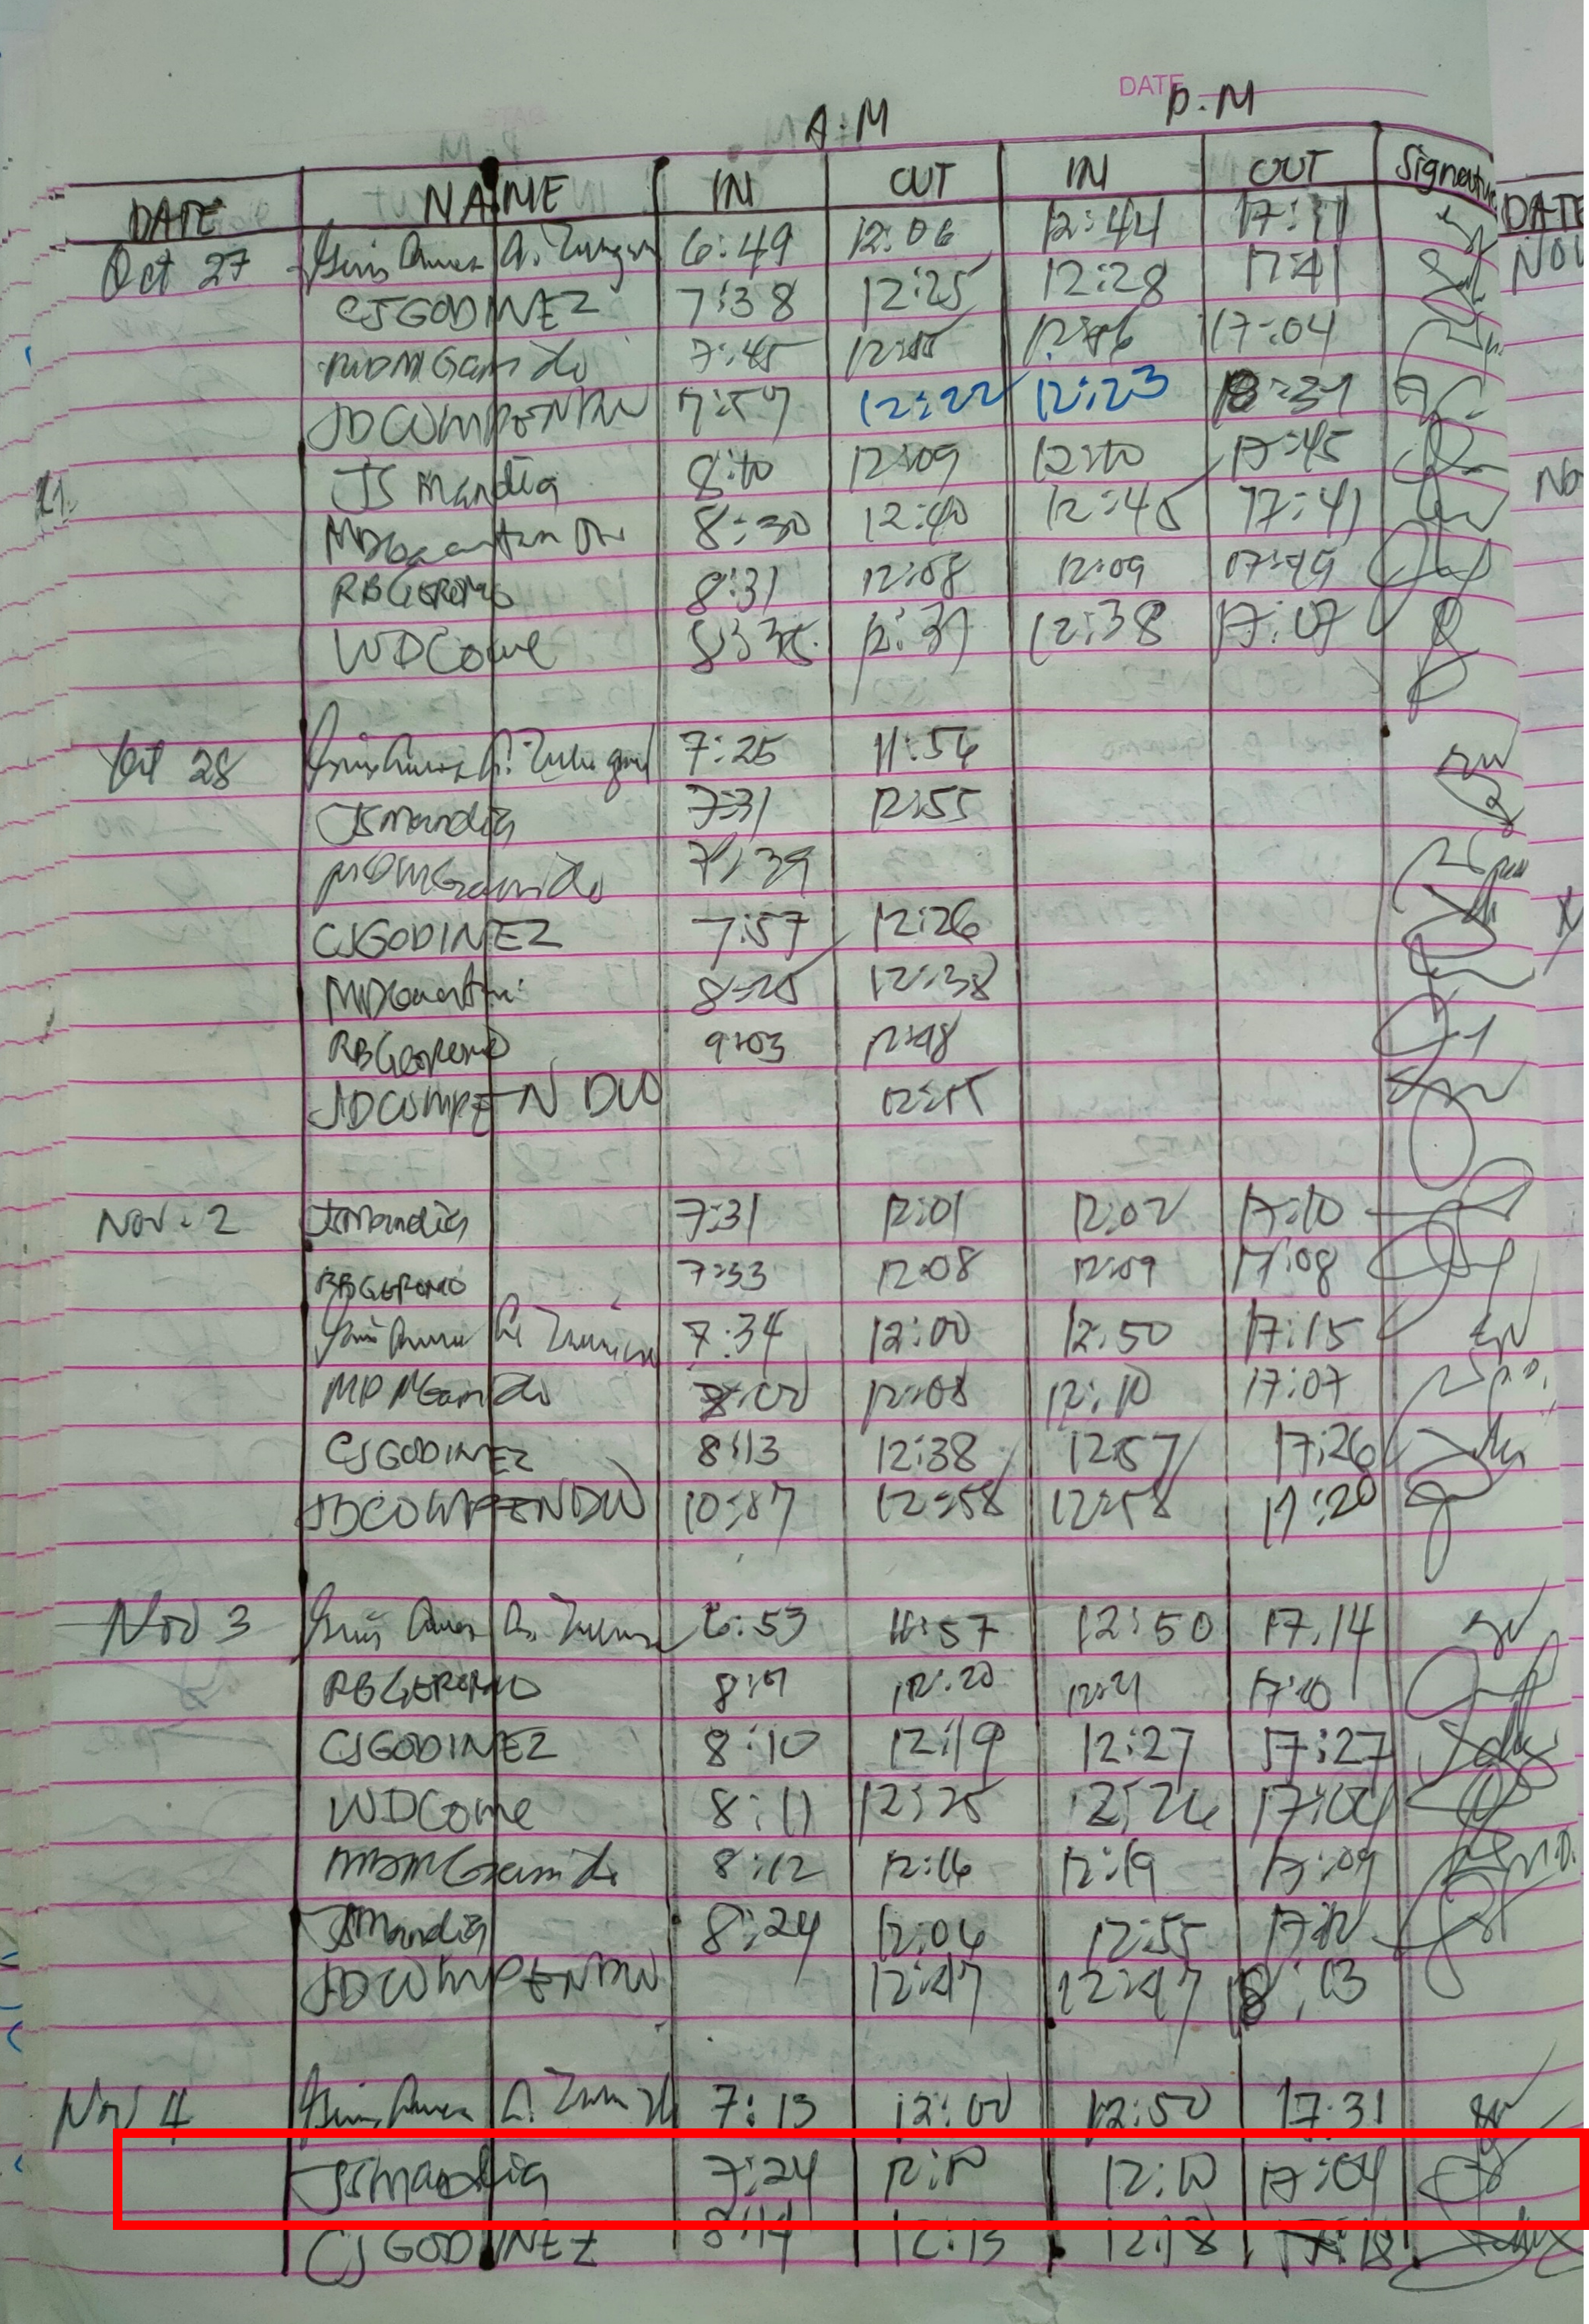 DATE
A.M P.M
DATE NAME IN OUT IN OUT Signature DATE
Oct 27 6:49 12:06 12:44 17:11
NOV
CJGODINEZ 7:38 12:25 12:28 17:41
MDMGamido 7:45 17:04
JDCOMPENDIO 7:57 12:22 12:23 18:31
JSMandia 8:10 12:09 12:10 17:45
No
8:30 12:40 12:45 17:41
RBGEROMO 8:31 12:08 12:09 17:49
WDCome 12:37 12:38 17:07
Oct 28 7:25 11:54
JSMandia 7:31 12:55
MDMGamido 7:39
CJGODINEZ 7:57 12:26
8:25 12:38
RBGEROMO 9:03 12:48
JDCOMPENDIO
Nov. 2 JSMandia 7:31 12:01 12:02 17:10
RBGEROMO 7:33 12:08 12:09 17:08
7:34 12:00 12:50 17:15
MDMGamido 8:00 12:08 12:10 17:07
CJGODINEZ 8:13 12:38 12:57 17:26
JDCOMPENDIO 12:58 12:58 17:20
Nov 3 6:53 11:57 12:50 17:14
RBGEROMO 12:20 12:21 17:10
CJGODINEZ 8:10 12:19 12:27 17:27
WDCome 8:11 12:25 12:26
MDMGamido 8:12 12:16 12:19 17:09
JSMandia 8:24 12:04 12:55 17:12
JDCOMPENDIO 12:47 12:47 18:03
Nov 4 7:13 12:00 12:50 17:31
JSMandia 7:24 12:10 12:10 17:04
CJGODINEZ 8:14 12:15 12:18 17:18